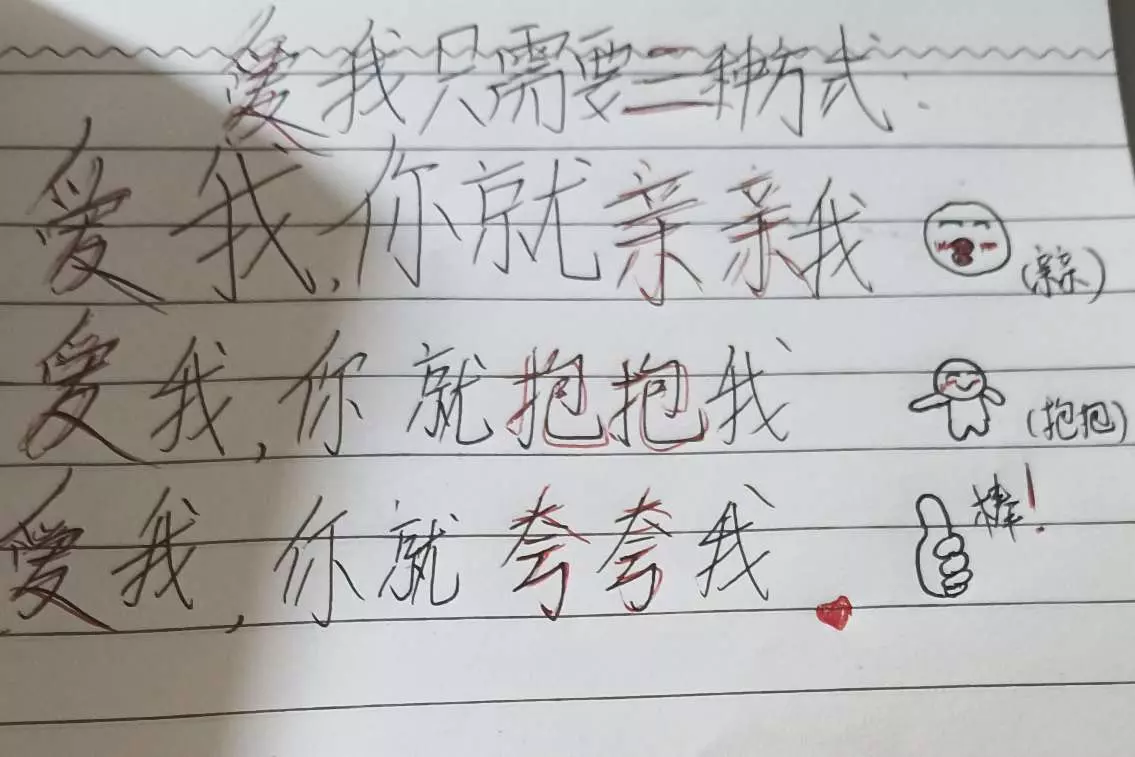 爱我只需要三种方式:
爱我,你就亲亲我 (亲亲)
爱我,你就抱抱我 (抱抱)
爱我,你就夸夸我 棒!